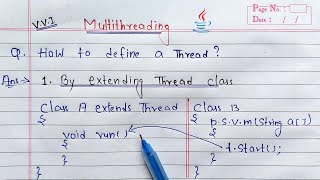 V.V.I
Multithreading
Page No.:
Date: / /
Q. How to define a Thread?
Ans→ 1. By extending Thread class
Class A extends Thread
{
void run()
{
}
}
Class B
{
p.s.v.m(String a[])
{
t.start();
}
}